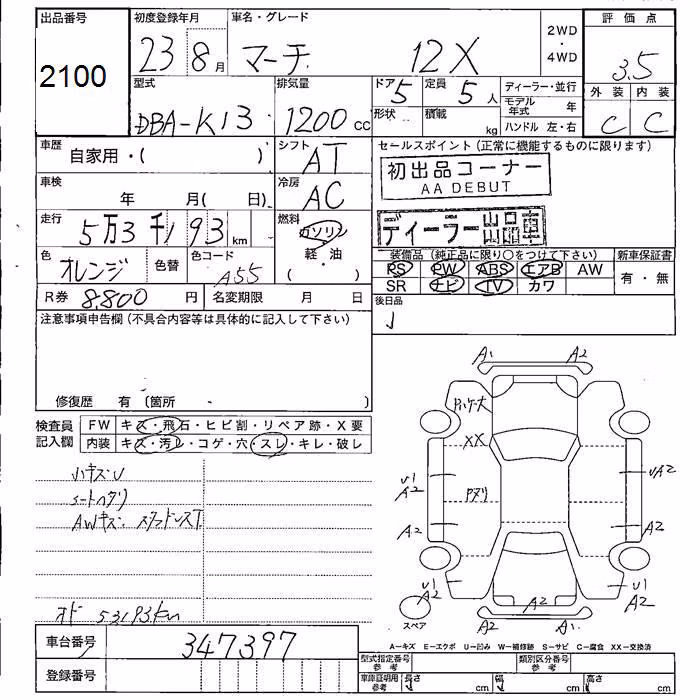 出品番号
2100
初度登録年月
23 8月
車名・グレード
マーチ 12X
2WD
・
4WD
評価点
3.5
外装 内装
C C
型式
DBA-K13
排気量
1200 cc
ドア 5
定員 5人
形状
積載 kg
ディーラー・並行
モデル年式 年
ハンドル 左・右
車歴
自家用・( )
シフト
AT
セールスポイント (正常に機能するものに限ります)
初出品コーナー
AA DEBUT
ディーラー出品車
車検
年 月( 日)
冷房
AC
走行
5万3千193 km
燃料
ガソリン
軽・油
( ・ )
色
オレンジ
色替
色コード
A55
装備品 (純正品に限り○をつけて下さい)
PS PW ABS エアB AW
SR ナビ TV カワ
新車保証書
有・無
R券 8800 円
名変期限 月 日
後日品
注意事項申告欄 (不具合内容等は具体的に記入して下さい)
修復歴 有 (箇所 )
検査員
記入欄
FW キズ・飛石・ヒビ割・リペア跡・X要
内装 キズ・汚レ・コゲ・穴・スレ・キレ・破レ
小キズU
シートヘタリ
AWキズ
オド 53193km
車台番号 347397
登録番号
A1 A2
XX
U1
A2
UA2
A2
A2
U1
A2
U1
A2
A2
スペア
A2 A1
A-キズ E-エクボ U-凹み W-補修跡 S-サビ C-腐食 XX-交換済
型式指定番号
参考
類別区分番号
参考
車庫証明用
参考
長さ cm 幅 cm 高さ cm